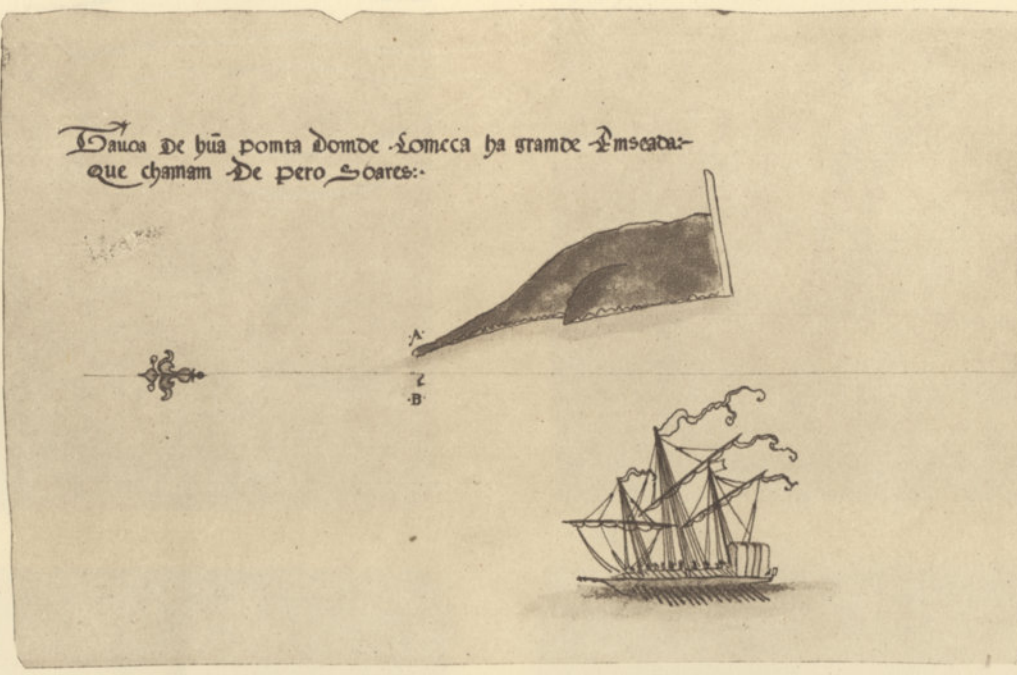 Tauoa De hũa pomta Domde Comcca ha gramde Emseada:~
Que chamam De pero Soares:·
·A·
2
·B·